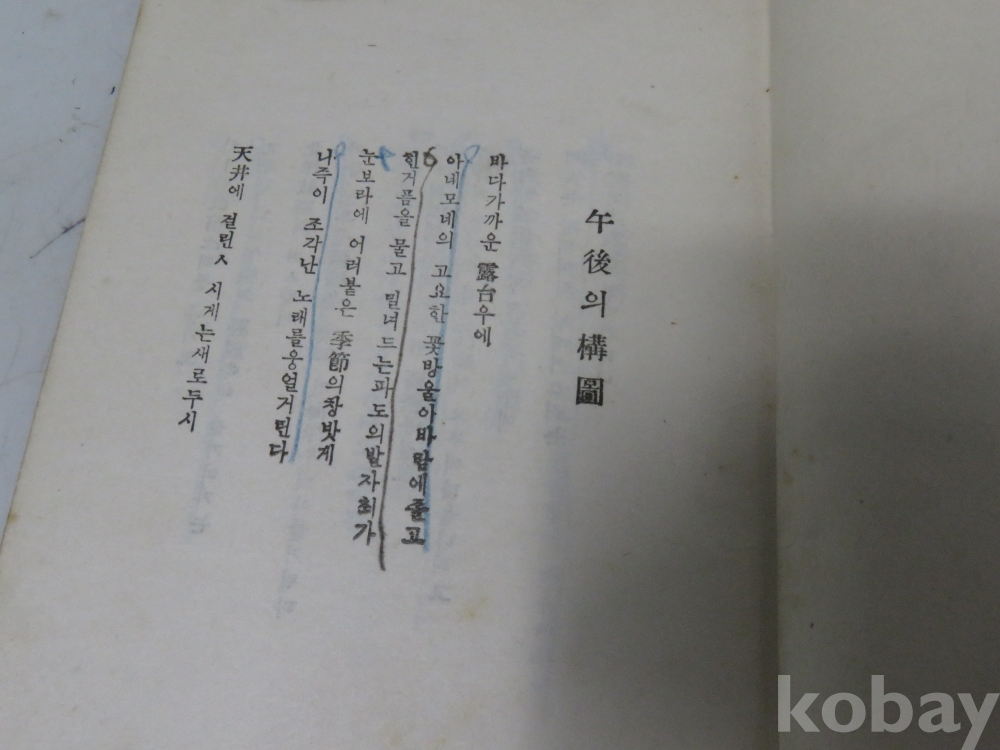 午後의 構圖
바다가까운 露台우에
아네모네의 고요한 꽃방울이바람에졸고
흰거품을 물고 밀녀드는파도의발자최가
눈보라에 어러붙은 季節의창밧게
나즉이 조각난 노래를웅얼거린다
天井에 걸린ㅅ 시계는새로두시
kobay